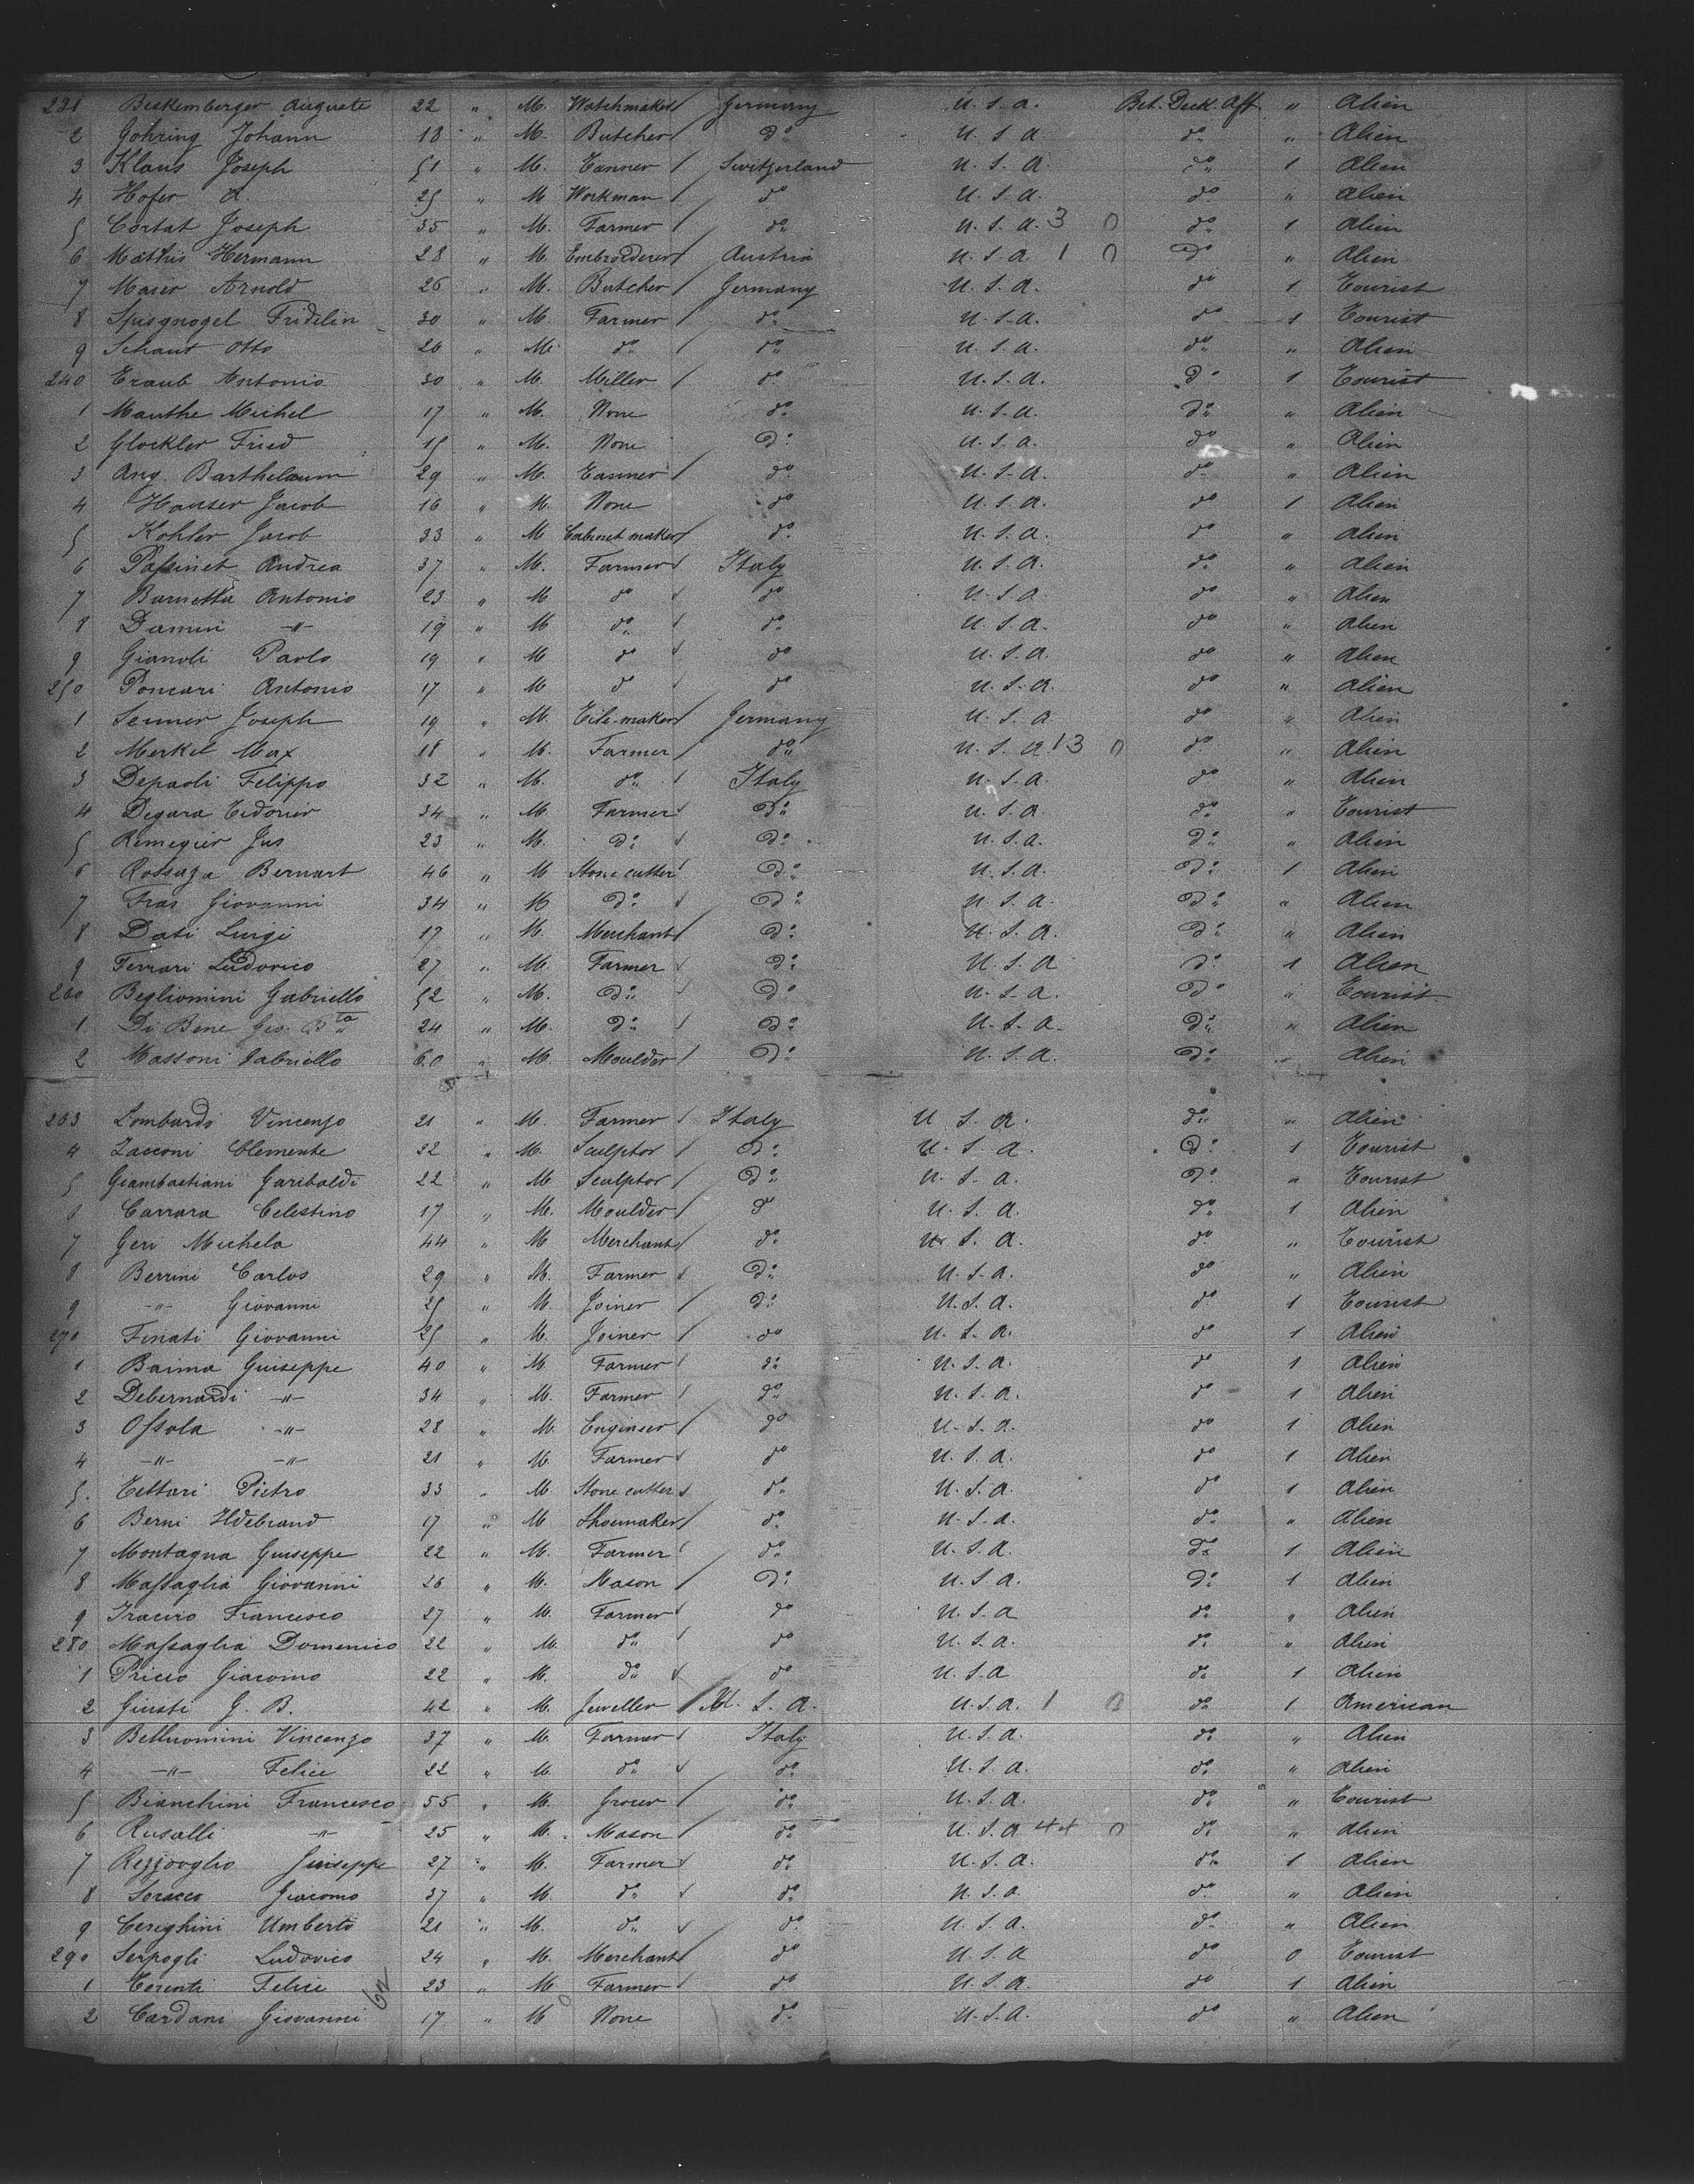 231 Beskemberger Auguste 22 " M. Watchmaker / Germany U. S. A. Bet. Deck Aft " Alien
2 Gohring Johann 18 " M. Butcher / do U. S. A. do " Alien
3 Klaus Joseph 51 " M. Tanner / Switzerland U. S. A. do 1 Alien
4 Hofer A. 25 " M Workman / do U. S. A. do " Alien
5 Cortat Joseph 35 " M. Farmer / do U. S. A. 3 0 do 1 Alien
6 Mattus Hermann 28 " M. Embroderer / Austria U. S. A. 1 0 do " Alien
7 Maier Arnold 26 " M. Butcher / Germany U. S. A. do 1 Tourist
8 Spisgnogel Fridelin 30 " M. Farmer / do U. S. A. do 1 Tourist
9 Schaut Otto 26 " M. do / do U. S. A. do " Alien
240 Traub Antonio 30 " M. Miller / do U. S. A. do 1 Tourist
1 Manthe Michel 17 " M. None do U. S. A. do " Alien
2 Glockler Fried 15 " M. None do U. S. A. do " Alien
3 Ang. Barthelaum 29 " M. Tanner / do U. S. A. do " Alien
4 Hauser Jacob 16 " M. None do U. S. A. do 1 Alien
5 Kohler Jacob 33 " M Cabinet maker / do U. S. A. do " Alien
6 Passinet Andrea 37 " M. Farmer / Italy U. S. A. do " Alien
7 Barnetta Antonio 23 " M do / do U. S. A. do " Alien
8 Damini -"- 19 " M do / do U. S. A. do " Alien
9 Gianoli Paolo 19 " M do / do U. S. A. do " Alien
250 Poncari Antonio 17 " M do / do U. S. A. do " Alien
1 Senner Joseph 19 " M. Tile-maker / Germany U. S. A. do " Alien
2 Merkel Max 18 " M. Farmer / do U. S. A. 13 0 do " Alien
3 Depaoli Felippo 32 " M. do / Italy U. S. A. do " Alien
4 Degara Tidorier 34 " M. Farmer / do U. S. A. do " Tourist
5 Remegier Jus 23 " M. do / do U. S. A. do " Alien
6 Rossaza Bernart 46 " M Stone cutter / do U. S. A. do 1 Alien
7 Fras Giovanni 34 " M do / do U. S. A. do " Alien
8 Dati Luigi 17 " M. Merchant / do U. S. A. do " Alien
9 Ferrari Ludovico 27 " M. Farmer / do U. S. A do 1 Alien
260 Begliomini Gabriello 52 " M. do / do U. S. A. do " Tourist
1 Di Bene Gio. Bta 24 " M. do / do U. S. A. do " Alien
2 Massoni Gabriello 60 " M. Moulder / do U. S. A. do " Alien
263 Lombardi Vincenzo 21 " M. Farmer / Italy U S. A. do " Alien
4 Zacconi Clemente 32 " M. Sculptor / do U. S. A. do 1 Tourist
5 Giambastiani Garibaldi 22 " M Sculptor / do U. S. A. do " Tourist
6 Carrara Celestino 17 " M. Moulder / do U. S. A. do 1 Alien
7 Geri Michela 44 " M Merchant / do U. S. A. do " Tourist
8 Berrini Carlos 29 " M. Farmer / do U. S. A. do " Alien
9 -"- Giovanni 25 " M. Joiner / do U. S. A. do 1 Tourist
270 Finati Giovanni 25 " M. Joiner / do U. S. A. do 1 Alien
1 Baima Guiseppe 40 " M. Farmer / do U. S. A. do 1 Alien
2 Debernardi -"- 34 " M. Farmer / do U. S. A. do 1 Alien
3 Ossola -"- 28 " M. Engineer / do U. S. A. do 1 Alien
4 -"- -"- 21 " M. Farmer / do U. S. A. do 1 Alien
5. Tettari Pietro 33 " M Stone cutter / do U. S. A. do 1 Alien
6 Berni Ildebrand 17 " M Shoemaker / do U. S. A. do " Alien
7 Montagna Guiseppe 22 " M. Farmer / do U. S. A. do 1 Alien
8 Massaglia Giovanni 26 " M. Mason / do U. S. A. do 1 Alien
9 Iracivo Francesco 27 " M. Farmer / do U. S. A do " Alien
280 Massaglia Domenico 22 " M. do / do U. S. A. do " Alien
1 Pricco Giacomo 22 " M. do / do U. S. A do 1 Alien
2 Giusti G. B. 42 " M. Jeweller / U. S. A. U. S. A. 1 0 do 1 American
3 Belluomini Vincenzo 37 " M. Farmer / Italy U. S. A. do " Alien
4 -"- Felice 22 " M. do / do U. S. A. do " Alien
5 Bianchini Francesco 55 " M. Grocer / do U. S. A. do " Tourist
6 Rusalli -"- 25 " M. Mason / do U. S. A 44 0 do " Alien
7 Rezzoaglio Guiseppe 27 " M. Farmer / do U. S. A. do 1 Alien
8 Soracco Giacomo 37 " M. do / do U. S. A. do " Alien
9 Cereghini Umberto 21 " M. do / do U. S. A. do " Alien
290 Serpogli Ludovico 24 " M. Merchant / do U. S. A do 0 Tourist
1 Torenti Felice 23 " M. Farmer / do U. S. A. do 1 Alien
2 Cardani Giovanni 17 " M None do U. S. A. do " Alien